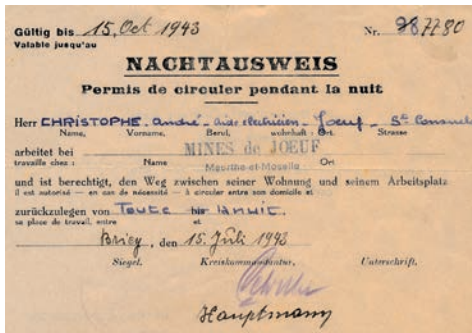 Gültig bis 15. Oct 1943 Nr. 987780
Valable jusqu'au
NACHTAUSWEIS
Permis de circuler pendant la nuit
Herr CHRISTOPHE. André - aide électricien - Joeuf - Ste
Name, Vorname, Beruf, wohnhaft : Ort. Strasse
arbeitet bei MINES de JOEUF
travaille chez : Name Meurthe-et-Moselle Ort
und ist berechtigt, den Weg zwischen seiner Wohnung und seinem Arbeitsplatz
il est autorisé — en cas de nécessité — à circuler entre son domicile et
zurückzulegen von Toute la nuit.
sa place de travail, entre et
Briey, den 15. Juli 1943
Siegel. Kreiskommandantur. Unterschrift.
Hauptmann